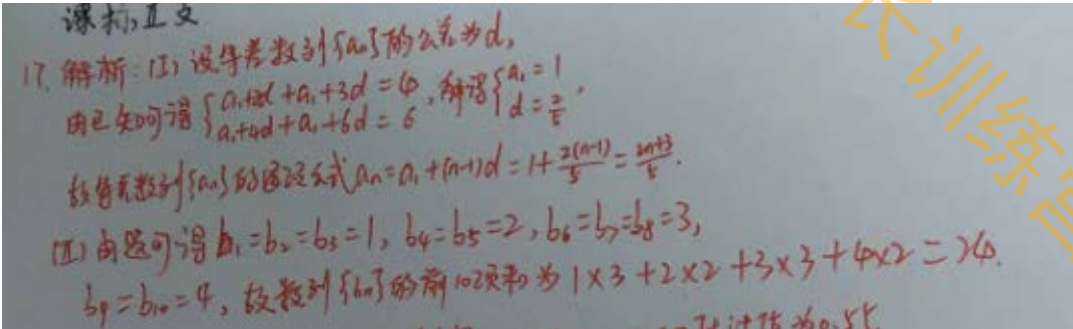 课标,正文
17. 解析:(Ⅰ) 设等差数列{aₙ}的公差为d,
由已知可得{a₁+2d+a₁+3d=4, a₁+4d+a₁+6d=6, 解得{a₁=1, d=2/5.
故等差数列{aₙ}的通项公式aₙ=a₁+(n-1)d=1+2(n-1)/5=(2n+3)/5.
(Ⅱ) 由题可得b₁=b₂=b₃=1, b₄=b₅=2, b₆=b₇=b₈=3,
b₉=b₁₀=4, 故数列{bₙ}的前10项和为1×3+2×2+3×3+4×2=24.
为0.55
长训练营